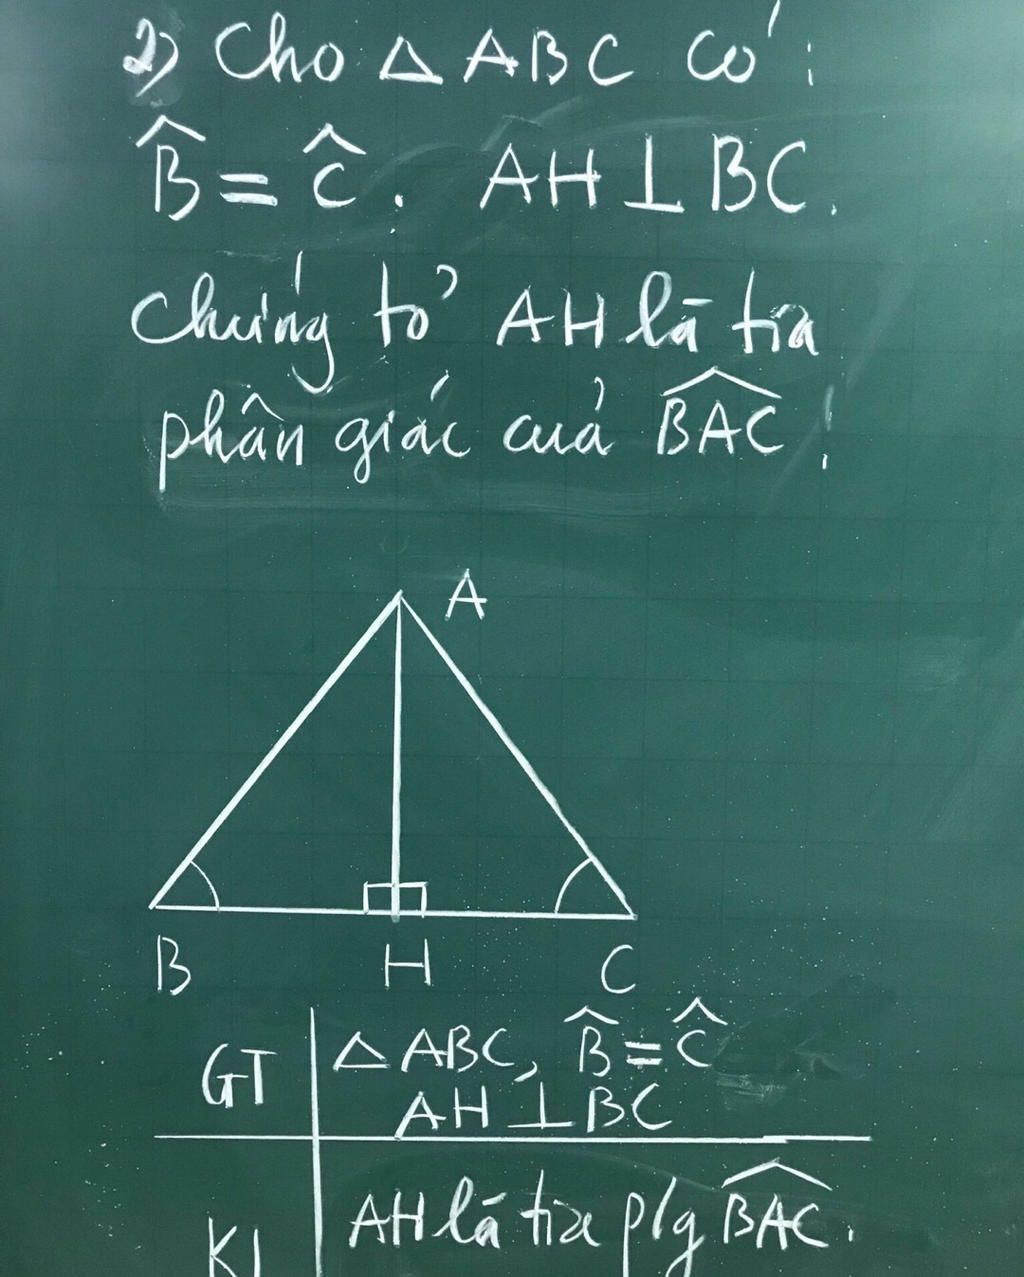 2) Cho △ABC có:
B̂ = Ĉ. AH ⊥ BC.
Chứng tỏ AH là tia
phân giác của B̂AC!
A
B H C
GT △ABC, B̂ = Ĉ
AH ⊥ BC
KL AH là tia p/g B̂AC.